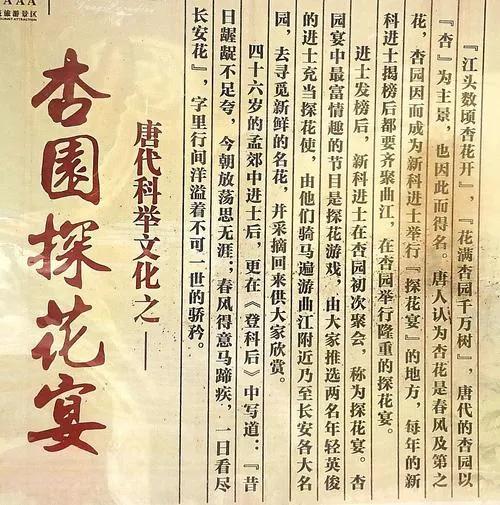 『江头数顷杏花开』,『花满杏园千万树』,唐代的杏园以
『杏』为主景,也因此而得名。唐人认为杏花是春风及第之
花,杏园因而成为新科进士举行『探花宴』的地方,每年的新
科进士揭榜后都要齐聚曲江,在杏园举行隆重的探花宴。
进士发榜后,新科进士在杏园初次聚会,称为探花宴。杏
园宴中最富情趣的节目是探花游戏,由大家推选两名年轻英俊
的进士充当探花使,由他们骑马遍游曲江附近乃至长安各大名
园,去寻觅新鲜的名花,并采摘回来供大家欣赏。
四十六岁的孟郊中进士后,更在《登科后》中写道:『昔
日龌龊不足夸,今朝放荡思无涯;春风得意马蹄疾,一日看尽
长安花』,字里行间洋溢着不可一世的骄矜。
唐代科举文化之—
杏園探花宴
AAA
旅游景区